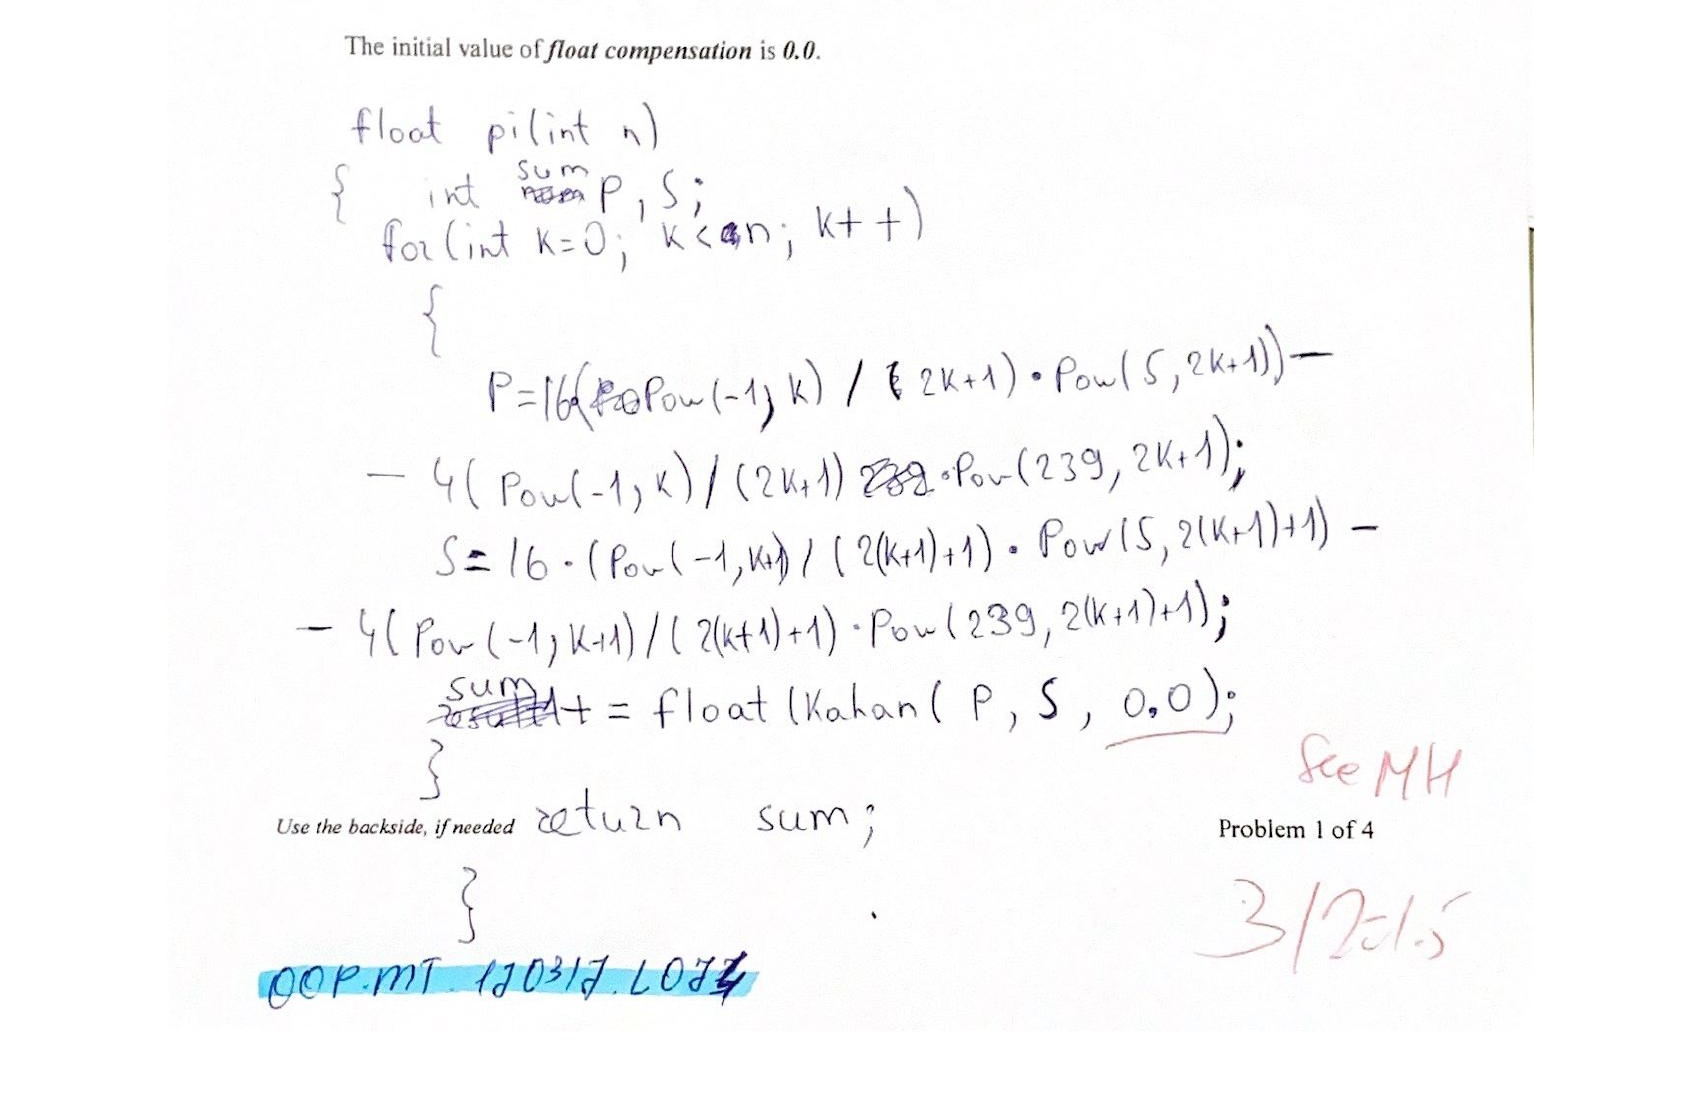 The initial value of float compensation is 0.0.
float pi(int n)
sum
{ int P, S;
for(int k=0; k<n; k++)
{
P=16(Pow(-1, k) / (2k+1) · Pow(5, 2k+1)) —
— 4( Pow(-1, k) / (2k+1) · Pow(239, 2k+1);
S = 16 · (Pow(-1, k+1) / (2(k+1)+1) · Pow(5, 2(k+1)+1) —
— 4( Pow(-1, k+1) / (2(k+1)+1) · Pow(239, 2(k+1)+1);
sum += float (Kahan( P, S, 0,0);
}
See MH
Use the backside, if needed return sum; Problem 1 of 4
}
3/2=1.5
OOP.MT.